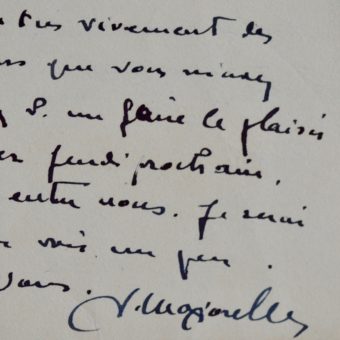 très vivement des
que vous
me faire le plaisir
jeudi prochain,
entre nous. Je serai
voir un peu.
J. Majorelle